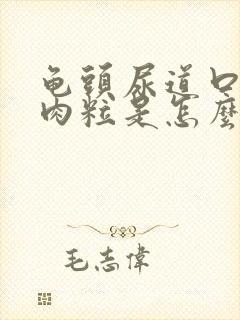 龟頭尿道口
肉粒是怎麼
毛志偉